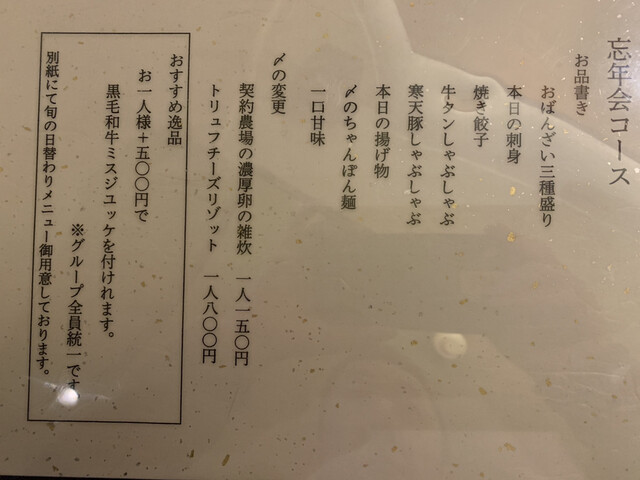 忘年会コース
お品書き
おばんざい三種盛り
本日の刺身
焼き餃子
牛タンしゃぶしゃぶ
寒天豚しゃぶしゃぶ
本日の揚げ物
〆のちゃんぽん麺
一口甘味
〆の変更
契約農場の濃厚卵の雑炊 一人一五〇円
トリュフチーズリゾット 一人八〇〇円
おすすめ逸品
お一人様+五〇〇円で
黒毛和牛ミスジユッケを付けれます。
※グループ全員統一です。
別紙にて旬の日替わりメニュー御用意しております。